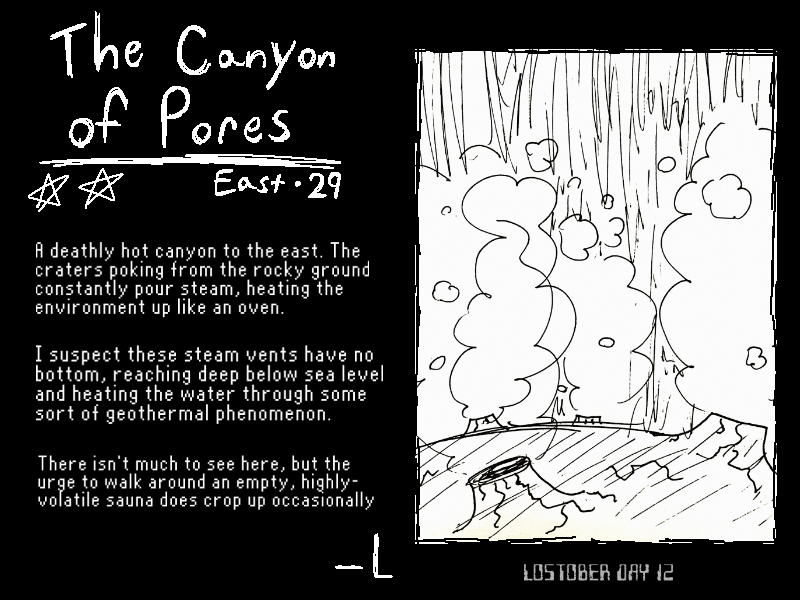 The Canyon
of Pores
East • 29
A deathly hot canyon to the east. The
craters poking from the rocky ground
constantly pour steam, heating the
environment up like an oven.
I suspect these steam vents have no
bottom, reaching deep below sea level
and heating the water through some
sort of geothermal phenomenon.
There isn't much to see here, but the
urge to walk around an empty, highly-
volatile sauna does crop up occasionally
—L
LOSTOBER DAY 12